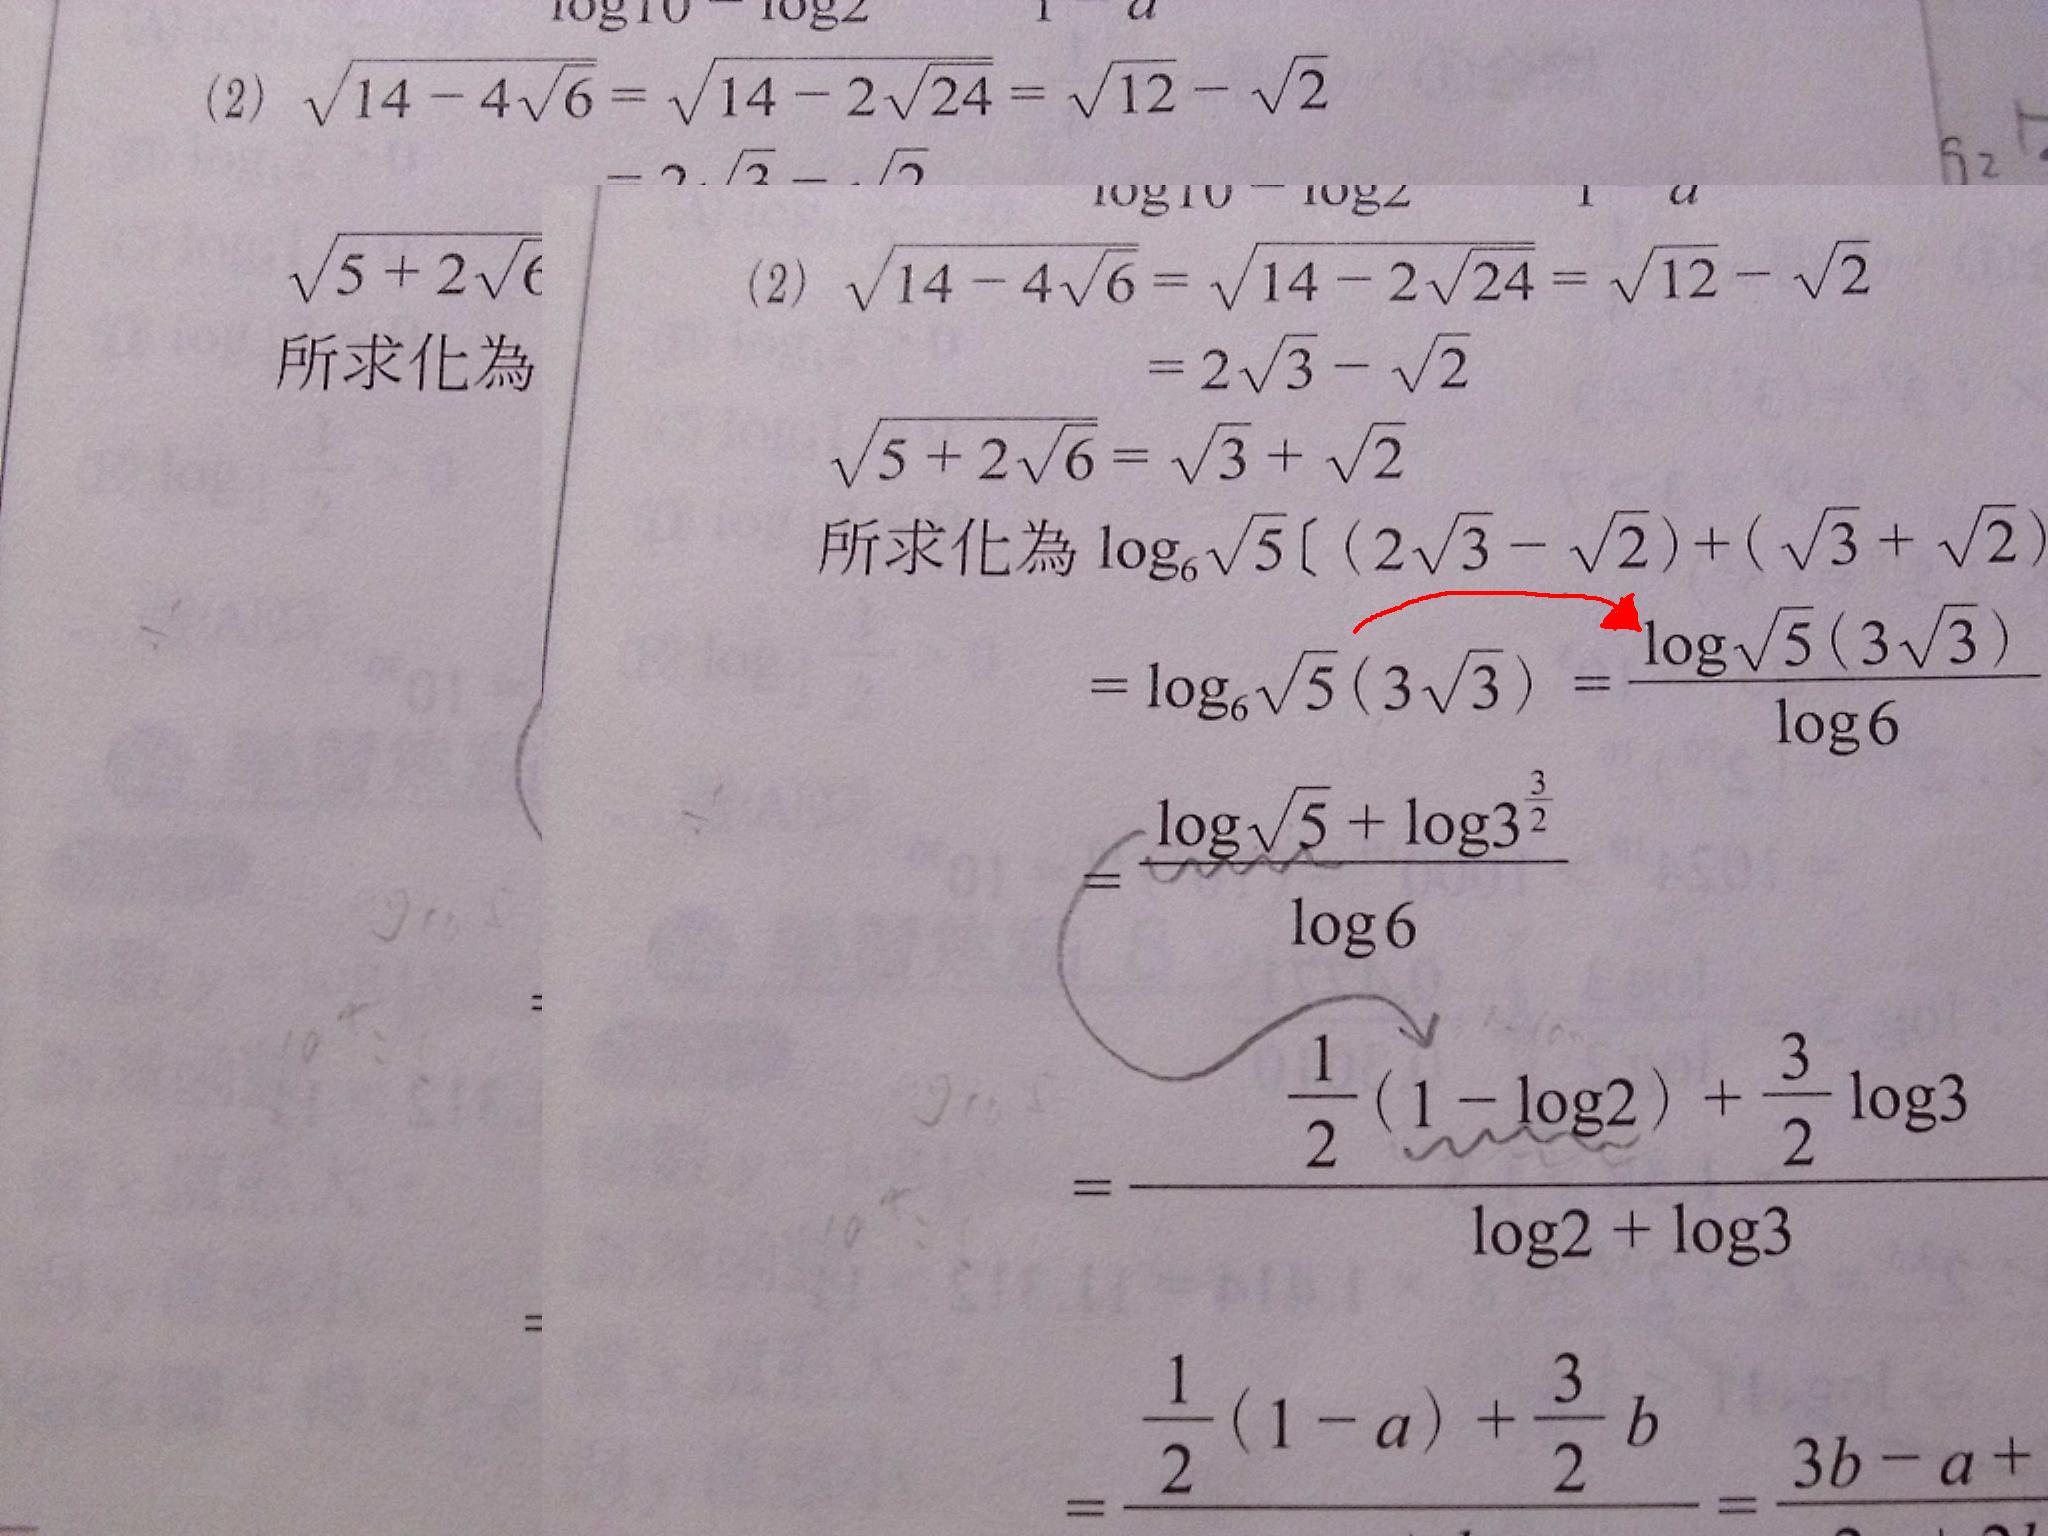 log10 − log2 1 − a
(2) √(14 − 4√6) = √(14 − 2√24) = √12 − √2
= 2√3 − √2
√(5 + 2√6
所求化為
log10 − log2 1 a
(2) √(14 − 4√6) = √(14 − 2√24) = √12 − √2
= 2√3 − √2
√(5 + 2√6) = √3 + √2
所求化為 log₆√5〔(2√3 − √2)+(√3 + √2)
= log₆√5(3√3) = \frac{log√5(3√3)}{log6}
= \frac{log√5 + log3^{\frac{3}{2}}}{log6}
= \frac{\frac{1}{2}(1 − log2) + \frac{3}{2} log3}{log2 + log3}
= \frac{1}{2}(1 − a) + \frac{3}{2} b = 3b − a +